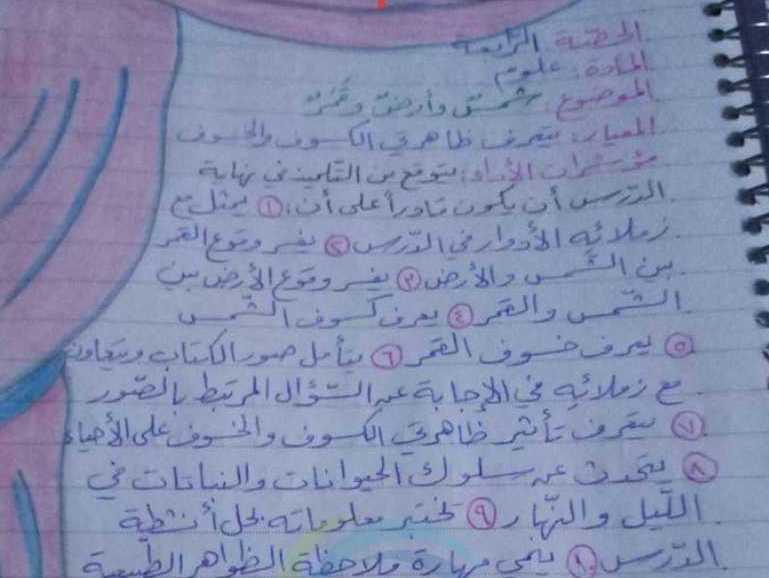 الحصة الرابعة
المادة: علوم
الموضوع: شمسٌ وأرضٌ وقمرٌ
المعيار: يتعرف ظاهرتي الكسوف والخسوف
مؤشرات الأداء: يتوقع من التلميذ في نهاية
الدّرس أن يكون قادراً على أن: ① يمثل مع
زملائه الأدوار في الدّرس ② يفسر وقوع القمر
بين الشّمس والأرض ③ يفسر وقوع الأرض بين
الشّمس والقمر ④ يعرف كسوف الشّمس
⑤ يعرف خسوف القمر ⑥ يتأمل صور الكتاب ويتعاون
مع زملائه في الإجابة عن السّؤال المرتبط بالصّور
⑦ يتعرف تأثير ظاهرتي الكسوف والخسوف على الأحياء
⑧ يتحدث عن سلوك الحيوانات والنباتات في
اللّيل والنّهار ⑨ يختبر معلوماته بحل أنشطة
الدّرس ⑩ ينمي مهارة ملاحظة الظواهر الطبيعية